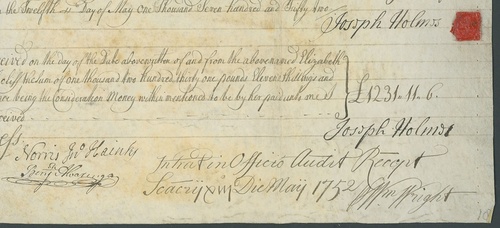 the Twelfth Day of May One Thousand Seven Hundred and Fifty two
Joseph Holmes
ceived on the day of the Date abovewritten of and from the abovenamed Elizabeth
the sum of one thousand two hundred thirty one pounds Eleven shillings and
being the Consideration Money within mentioned to be by her paid
£1231-11-6.
ceived
Joseph Holmes
Norris Jno Hainks
Intrat in Officio Audit Recept
Scacrij Die May 1752
Wright